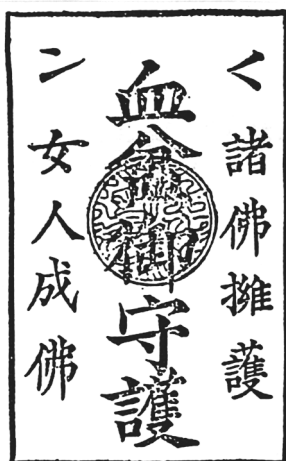 く諸佛擁護
血盆御守護
ン女人成佛